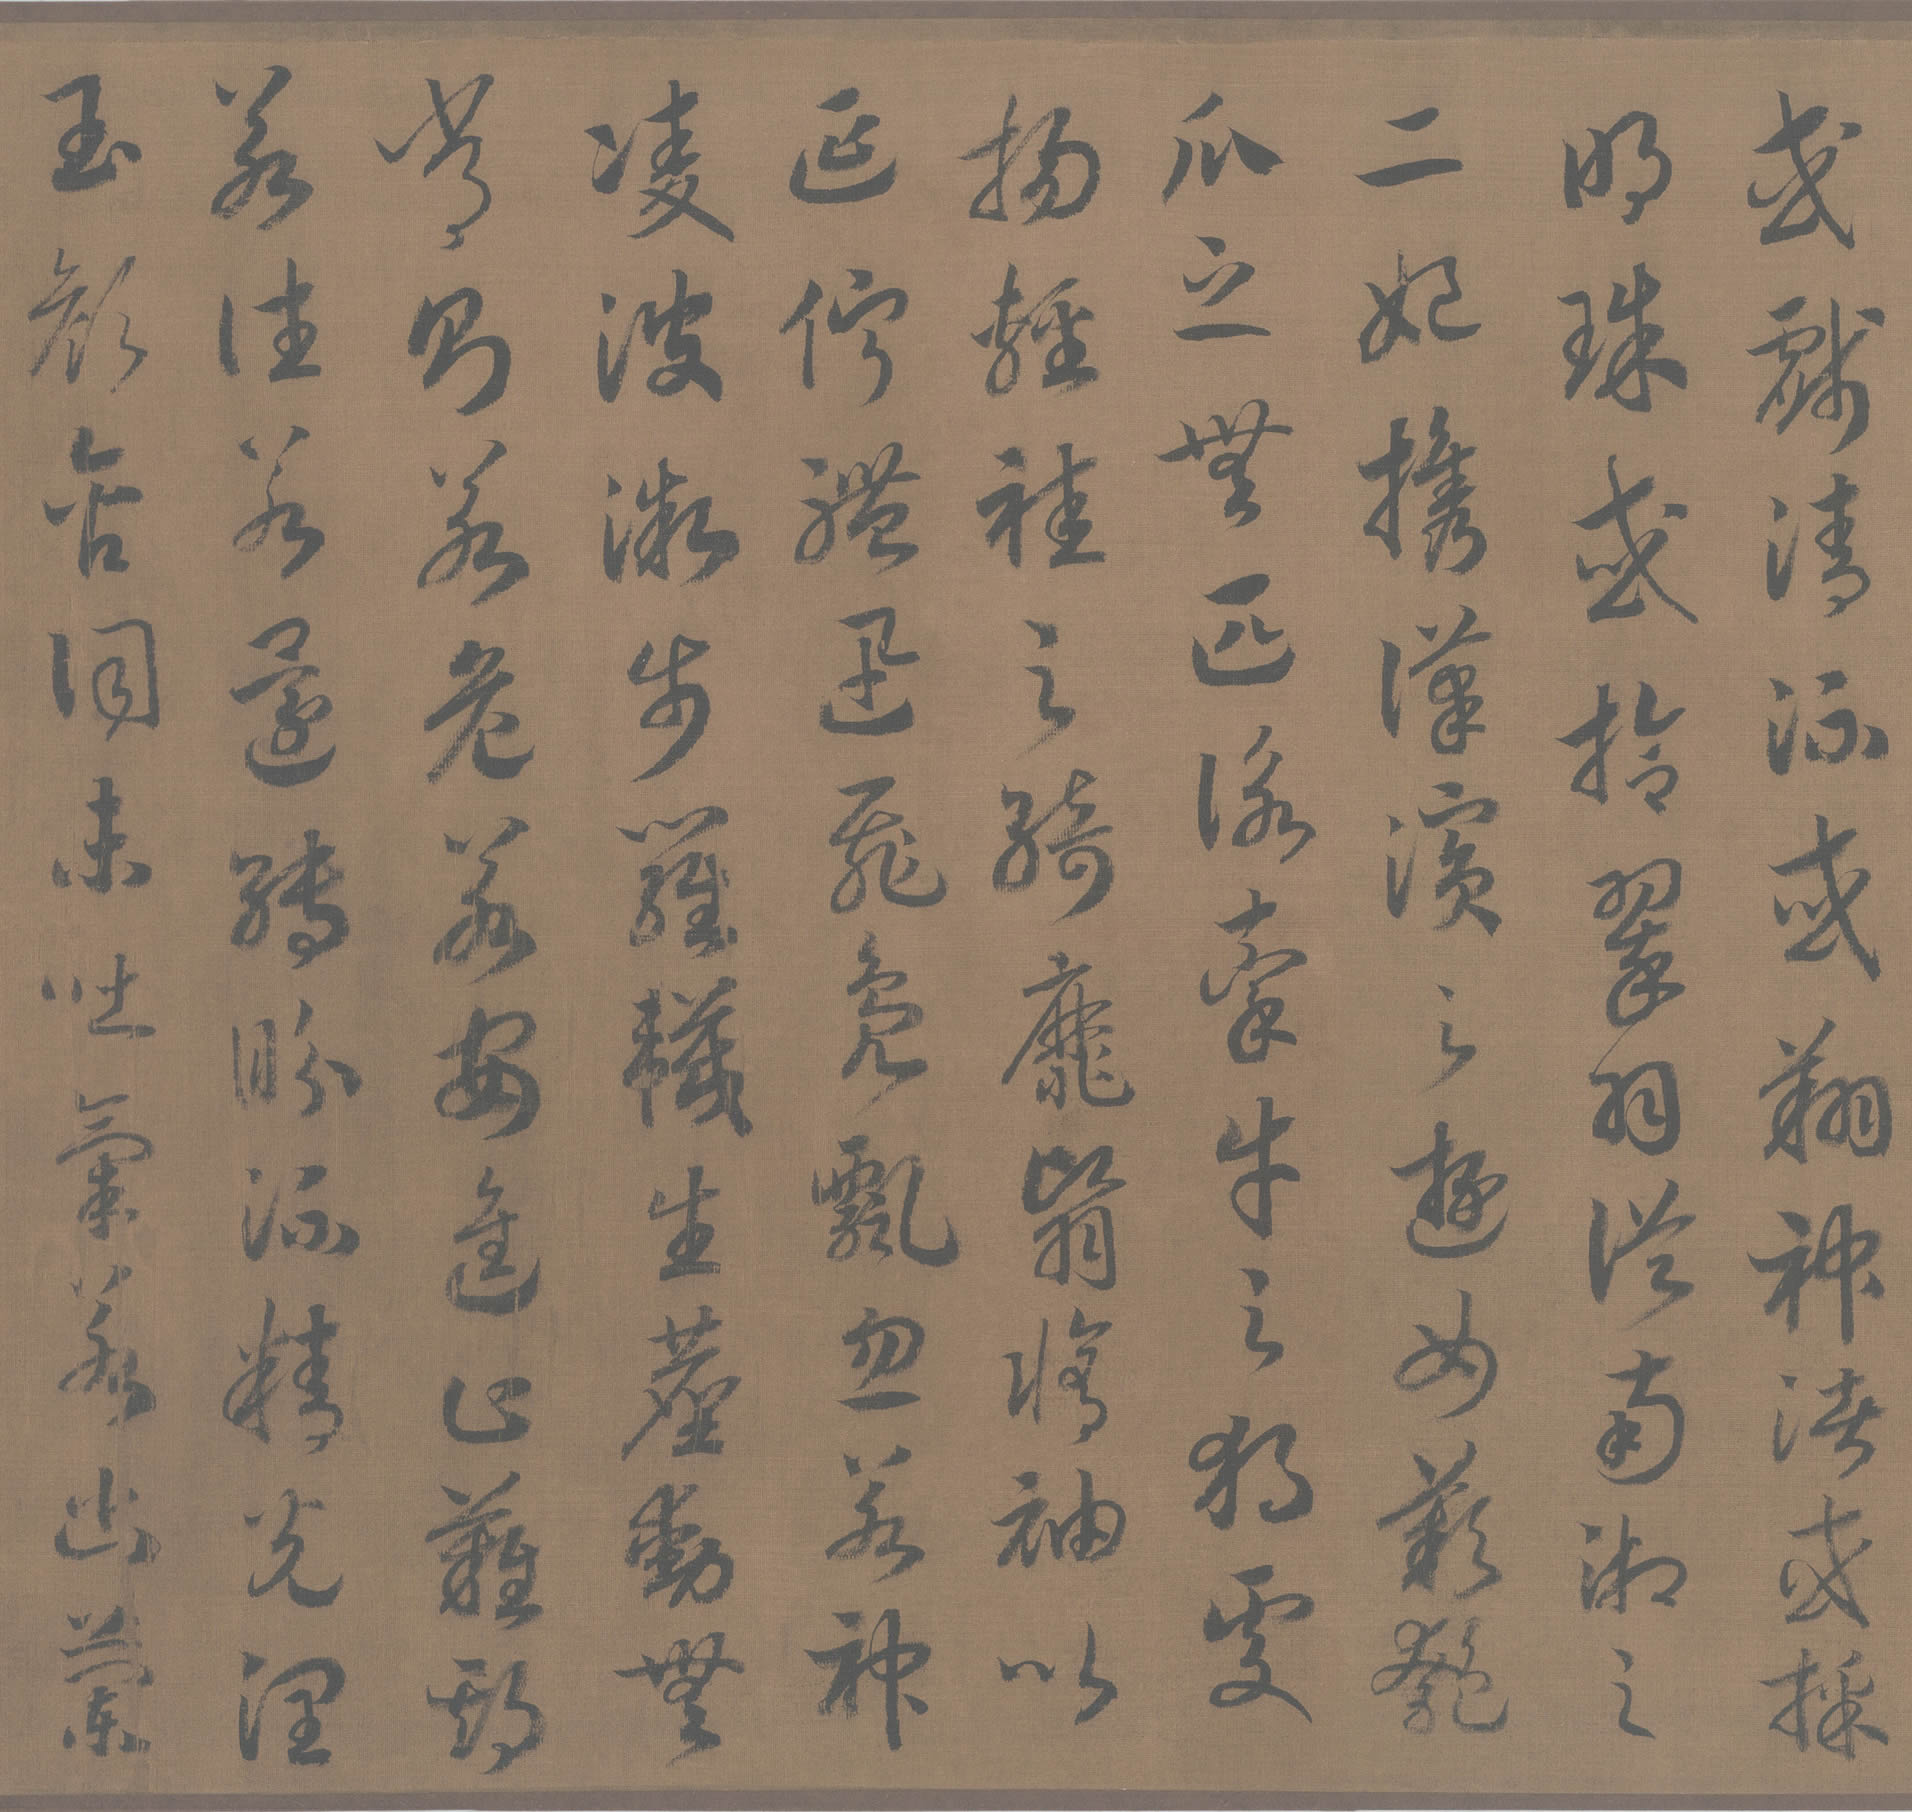 或戲清流或翔神渚或採
明珠或拾翠羽從南湘之
二妃攜漢濱之遊女歎匏
瓜之無匹詠牽牛之獨處
揚輕袿之綺靡翳脩袖以
延佇體迅飛鳧飄忽若神
凌波微步羅韈生塵動無
常則若危若安進止難期
若往若還轉眄流精光潤
玉顏含詞未吐氣若幽蘭